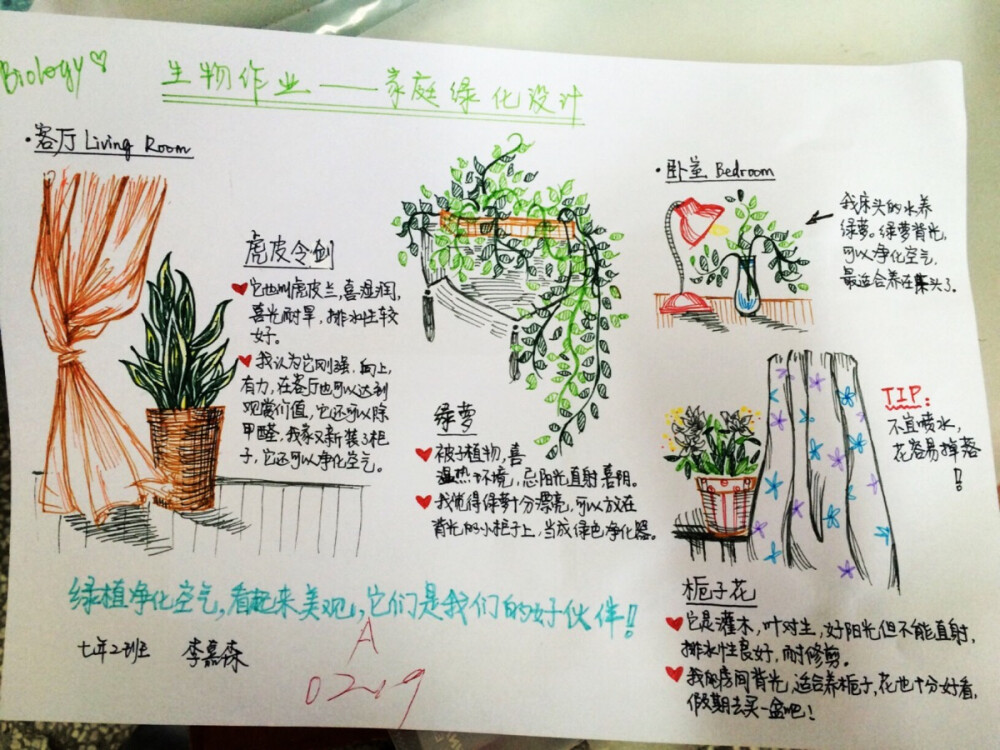 Biology
生物作业——家庭绿化设计
·客厅 Living Room
虎皮令剑
它也叫虎皮兰,喜湿润,
喜光耐旱,排水性较
好。
我认为它刚强,向上,
有力,在客厅也可以达到
观赏价值,它还可以除
甲醛,我家又新装了柜
子,它还可以净化空气。
绿萝
被子植物,喜
湿热环境,忌阳光直射喜阴。
我觉得绿萝十分漂亮,可以放在
背光的小柜子上,当成绿色净化器。
·卧室 Bedroom
我床头的水养
绿萝。绿萝背光,
可以净化空气,
最适合养在床头了。
TIP:
不宜喷水,
花容易掉落
!
栀子花
它是灌木,叶对生,好阳光但不能直射,
排水性良好,耐修剪。
我的房间背光,适合养栀子,花也十分好看,
假期去买一盆吧!
绿植净化空气,看起来美观,它们是我们的好伙伴!
七年2班 李嘉森
A
0219